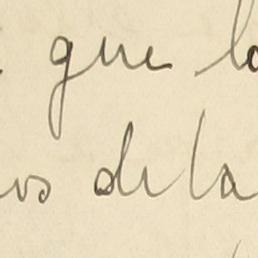 que lo
os de la